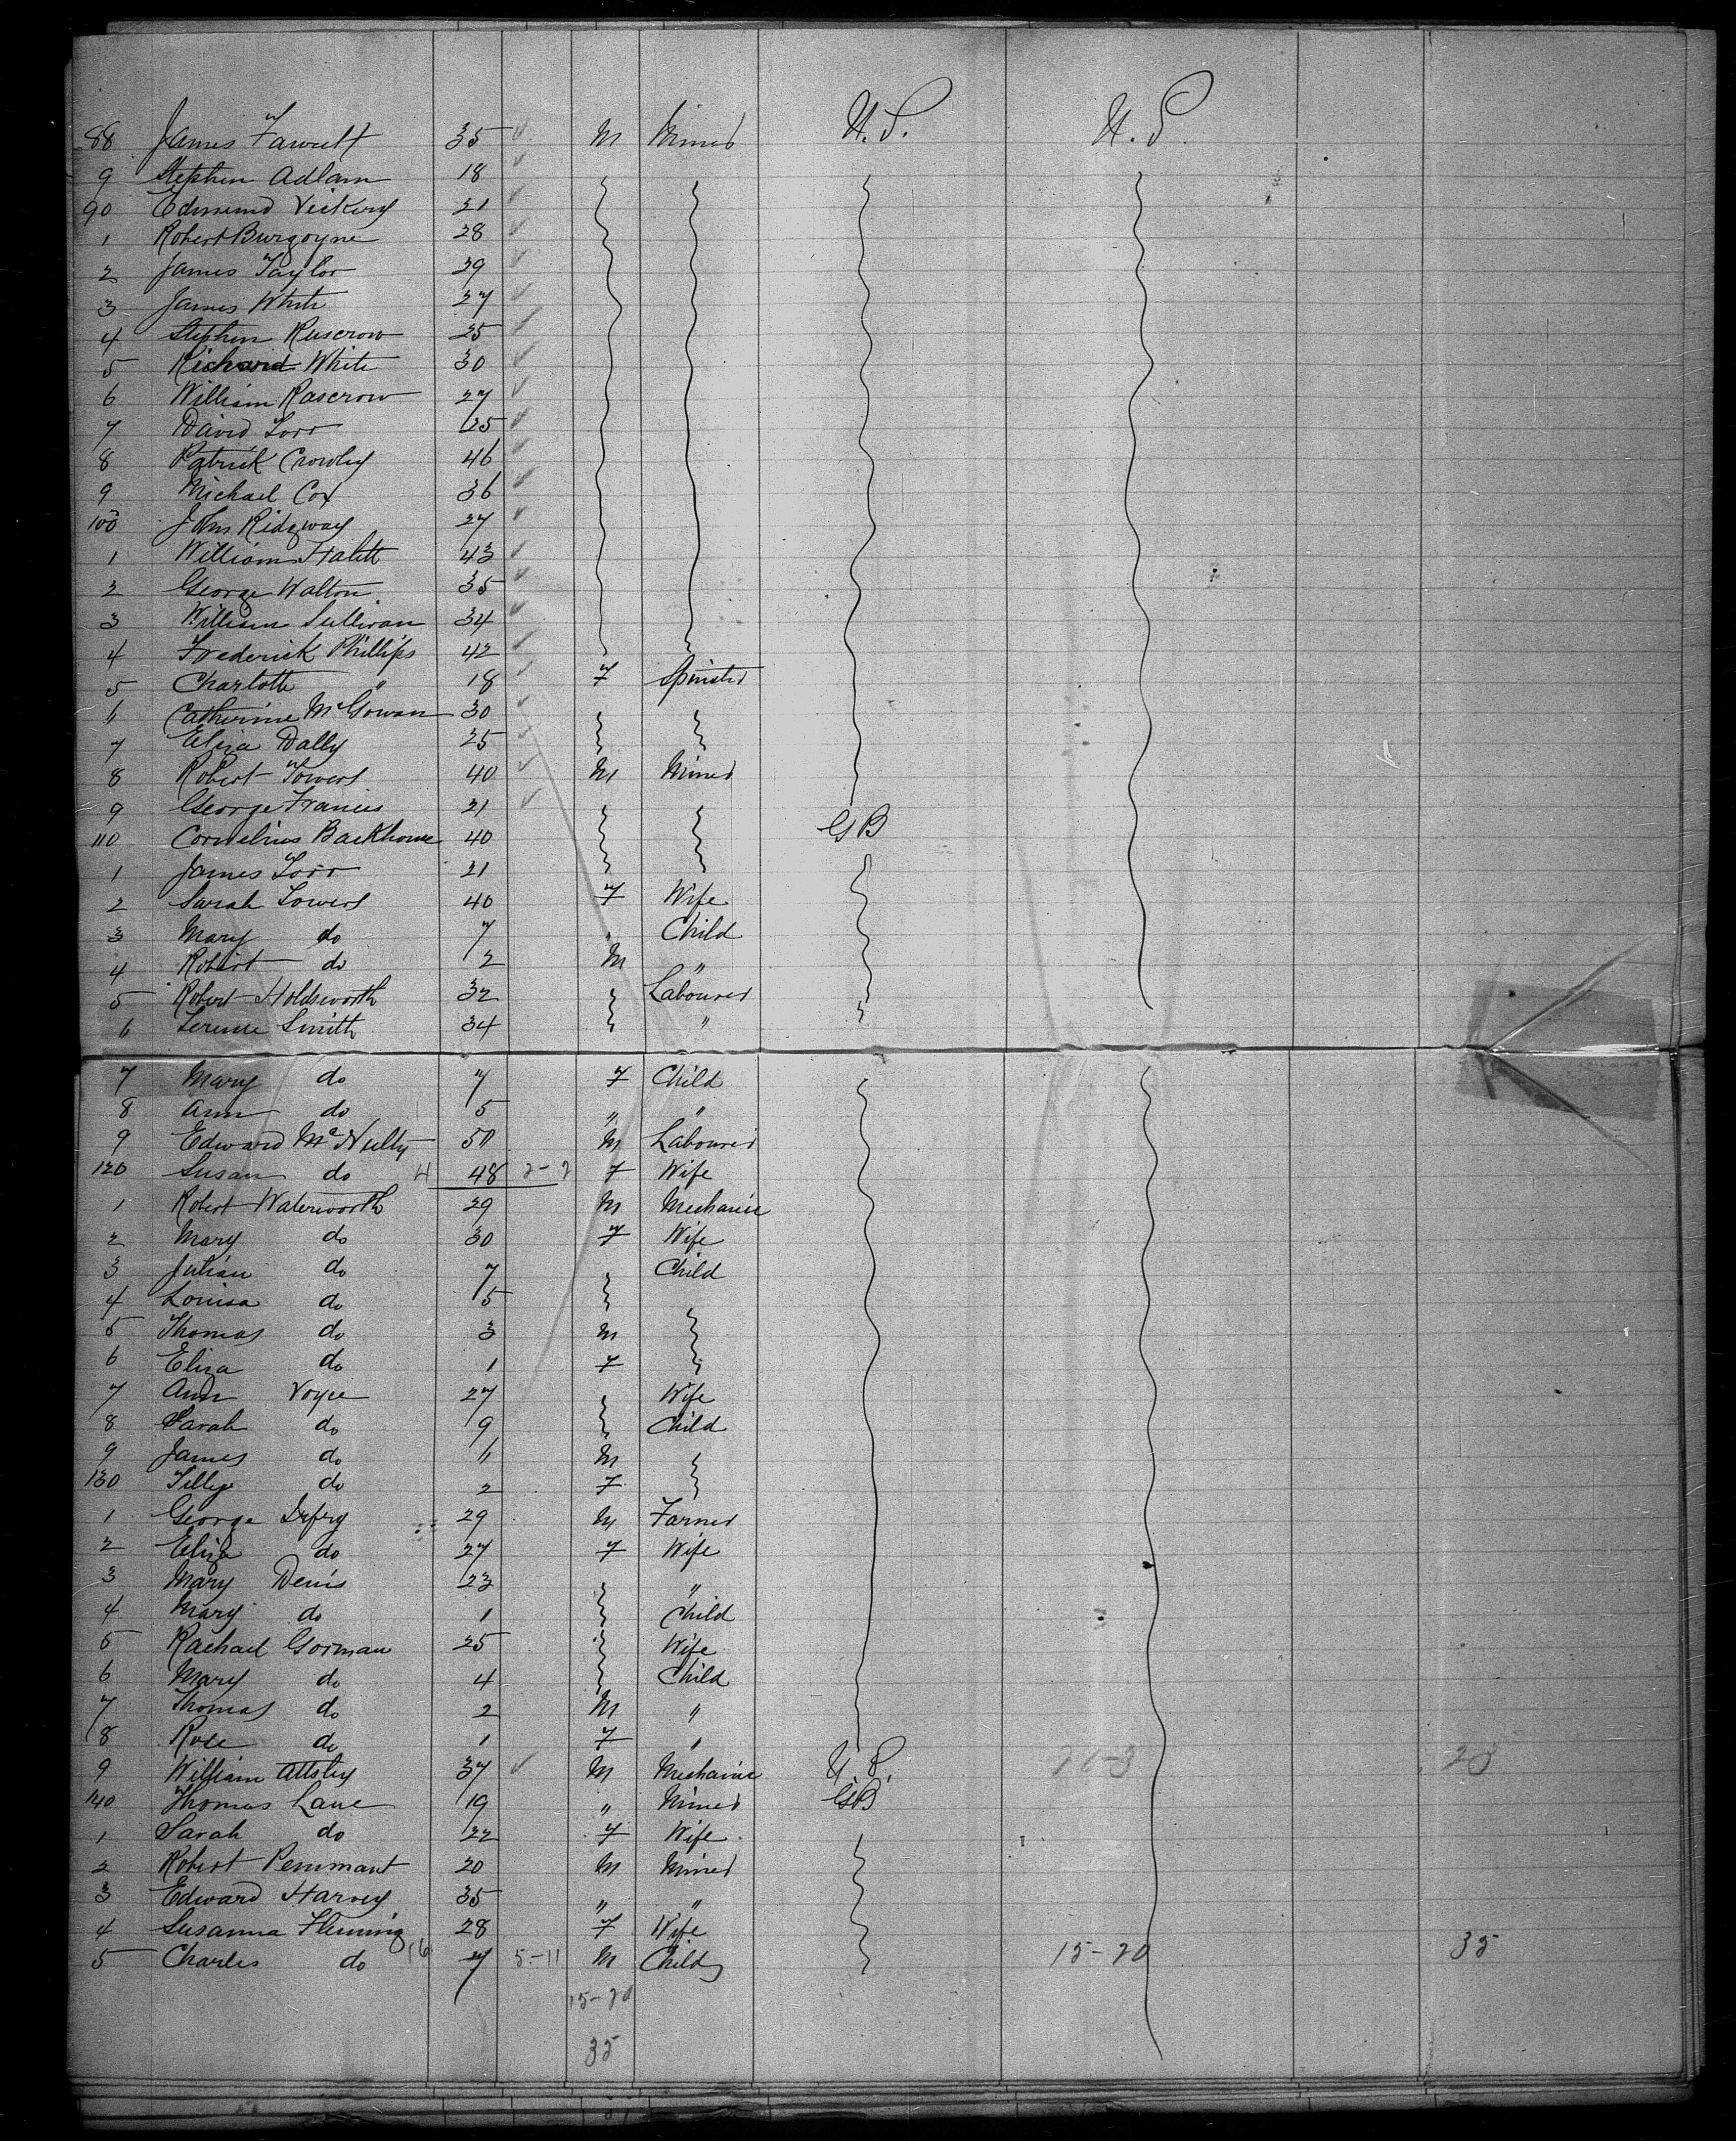 88 James Fawcett 35 M Miner U.S. U.S
9 Stephen Adlam 18
90 Edmund Vickery 21
1 Robert Burgoyne 28
2 James Taylor 29
3 James White 27
4 Stephen Ruscrow 25
5 Richard White 30
6 William Rascrow 27
7 David Torr 25
8 Patrick Crowley 46
9 Michael Cox 36
100 John Ridgway 27
1 William Halett 43
2 George Walton 35
3 William Sullivan 34
4 Frederick Phillips 42
5 Charlotte " 18 F Spinster
6 Catherine McGowan 30
7 Eliza Dally 25
8 Robert Towers 40 M Miner
9 George Francis 21
110 Cornelius Backhouse 40 GB
1 James Torr 21
2 Sarah Towers 40 F Wife
3 Mary do 7 " Child
4 Robert do 2 M "
5 Robert Holdsworth 32 Labourer
6 Terence Smith 34 "
7 Mary do 7 F Child
8 Ann do 5 " "
9 Edward McNulty 50 M Labourer
120 Susan do 4 48 2-2 F Wife
1 Robert Waterworth 29 M Mechanic
2 Mary do 30 F Wife
3 Julian do 7 Child
4 Louisa do 5
5 Thomas do 3 M
6 Eliza do 1 F
7 Ann Voyce 27 Wife
8 Sarah do 9 Child
9 James do 6 M
130 Tilly do 2 F
1 George 29 M Farmer
2 Eliza do 27 F Wife
3 Mary Denis 23 "
4 Mary do 1 Child
5 Rachael Gorman 25 Wife
6 Mary do 4 Child
7 Thomas do 2 M "
8 Rose do 1 F "
9 William Attsley 37 M Mechanic U.S. 20
140 Thomas Lane 19 " Miner GB
1 Sarah do 22 F Wife
2 Robert Pemmant 20 M Miner
3 Edward Harvey 35 " "
4 Susanna Fleming 28 F Wife
5 Charles do 16 7 5-11 M Child 15-20 35
15-20
35